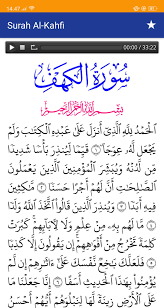 14.47
Surah Al-Kahfi
00:00 / 33:22
سُورَةُ الْكَهْفِ
بِسْمِ اللَّهِ الرَّحْمَنِ الرَّحِيمِ
الْحَمْدُ لِلَّهِ الَّذِي أَنْزَلَ عَلَى عَبْدِهِ الْكِتَابَ وَلَمْ
يَجْعَلْ لَهُ عِوَجًا ۜ (١) قَيِّمًا لِيُنْذِرَ بَأْسًا شَدِيدًا
مِنْ لَدُنْهُ وَيُبَشِّرَ الْمُؤْمِنِينَ الَّذِينَ يَعْمَلُونَ
الصَّالِحَاتِ أَنَّ لَهُمْ أَجْرًا حَسَنًا (٢) مَاكِثِينَ
فِيهِ أَبَدًا (٣) وَيُنْذِرَ الَّذِينَ قَالُوا اتَّخَذَ اللَّهُ وَلَدًا
(٤) مَا لَهُمْ بِهِ مِنْ عِلْمٍ وَلَا لِآبَائِهِمْ ۚ كَبُرَتْ
كَلِمَةً تَخْرُجُ مِنْ أَفْوَاهِهِمْ ۚ إِنْ يَقُولُونَ إِلَّا كَذِبًا
(٥) فَلَعَلَّكَ بَاخِعٌ نَفْسَكَ عَلَى آثَارِهِمْ إِنْ لَمْ
يُؤْمِنُوا بِهَذَا الْحَدِيثِ أَسَفًا (٦) إِنَّا جَعَلْنَا مَا
عَلَى الْأَرْضِ زِينَةً لَهَا لِنَبْلُوَهُمْ أَيُّهُمْ أَحْسَنُ